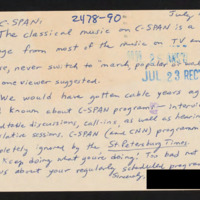 July
C-SPAN: 2478-90
The classical music on C-SPAN is a
ge from most of the music on T.V. and
re, never switch to "march, popular &
ome viewer suggested.
JUL 23 REC'
We would have gotten cable years ag
known about C-SPAN programs - interview
dtable discussions, call-ins, as well as hearin
islative sessions. C-SPAN (and CNN) programm
pletely ignored by the St. Petersburg Times.
Keep doing what you're doing. Too bad not
us about your regularly scheduled program
Sincerely,